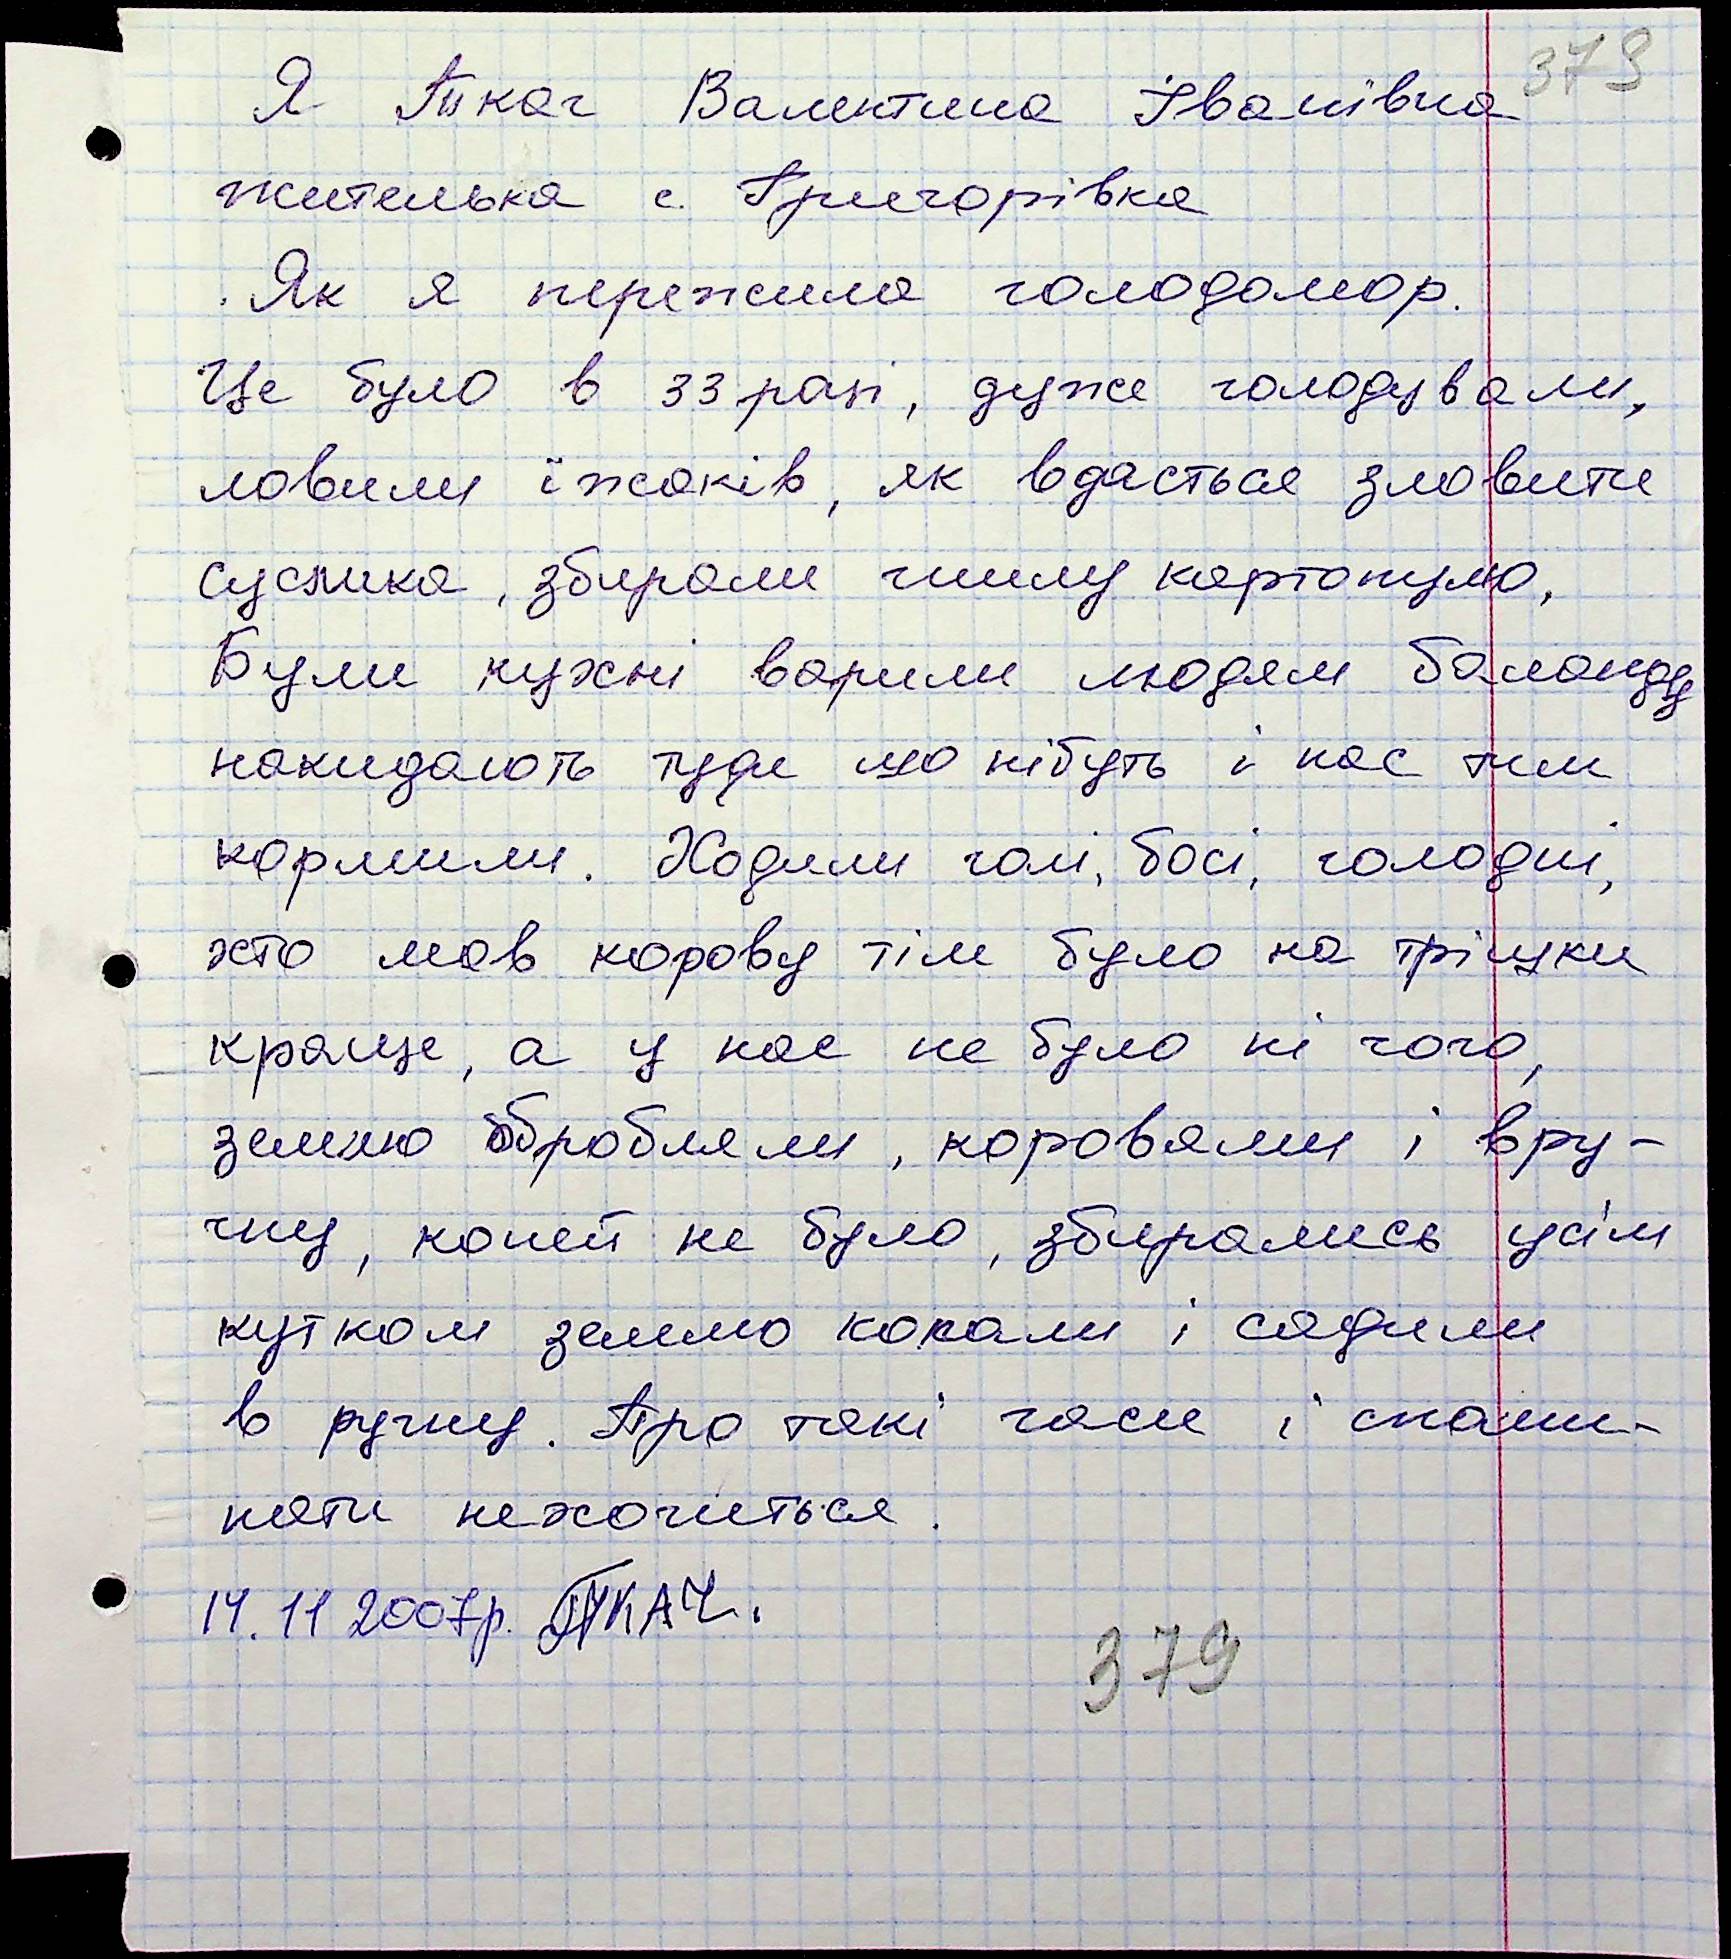 379
Я Ткач Валентина Іванівна
жителька с. Григорівка
Як я пережила голодомор.
Це було в 33 році, дуже голодували,
ловили їжаків, як вдасться зловити
суслика, збирали гнилу картоплю,
Були кухні варили людям баланду
накидають туди що нібуть і нас тим
кормили. Ходили голі, босі, голодні,
хто мав корову тім було на трішки
краще, а у нас не було ні чого,
землю обробляли, коровями і вру-
чну, коней не було, збирались усім
кутком землю копали і садили
в ручну. Про такі часи і спами-
нати нехочиться.
14.11 2007р. ТКАЧ.
379